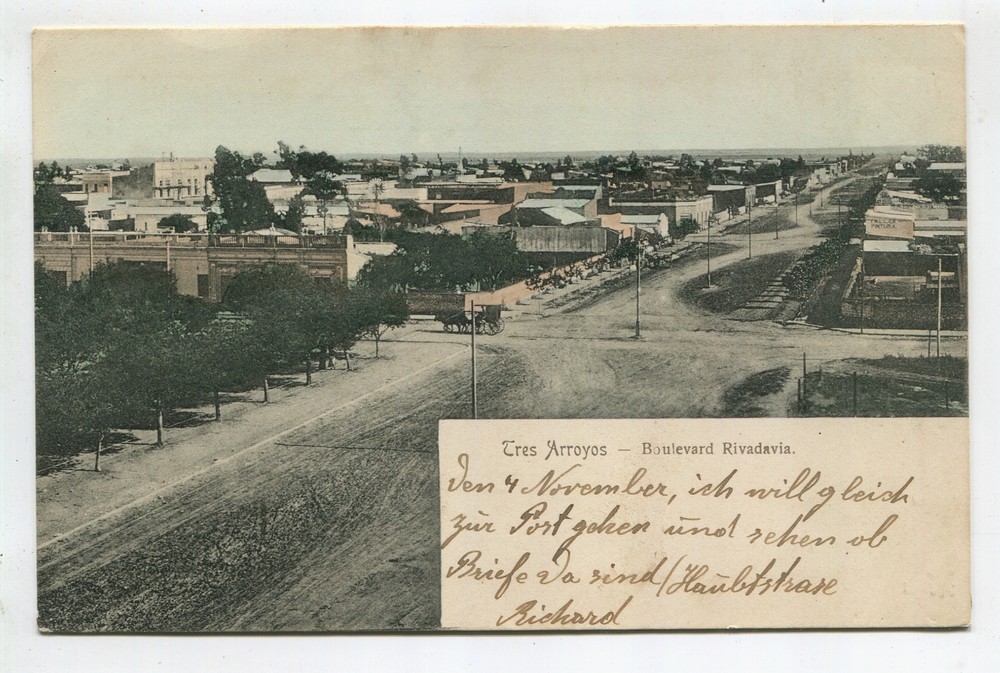 PINTURA
Tres Arroyos — Boulevard Rivadavia.
Den 4 November, ich will gleich
zür Post gehen ünd sehen ob
Briefe da sind/Haübtstrase
Richard